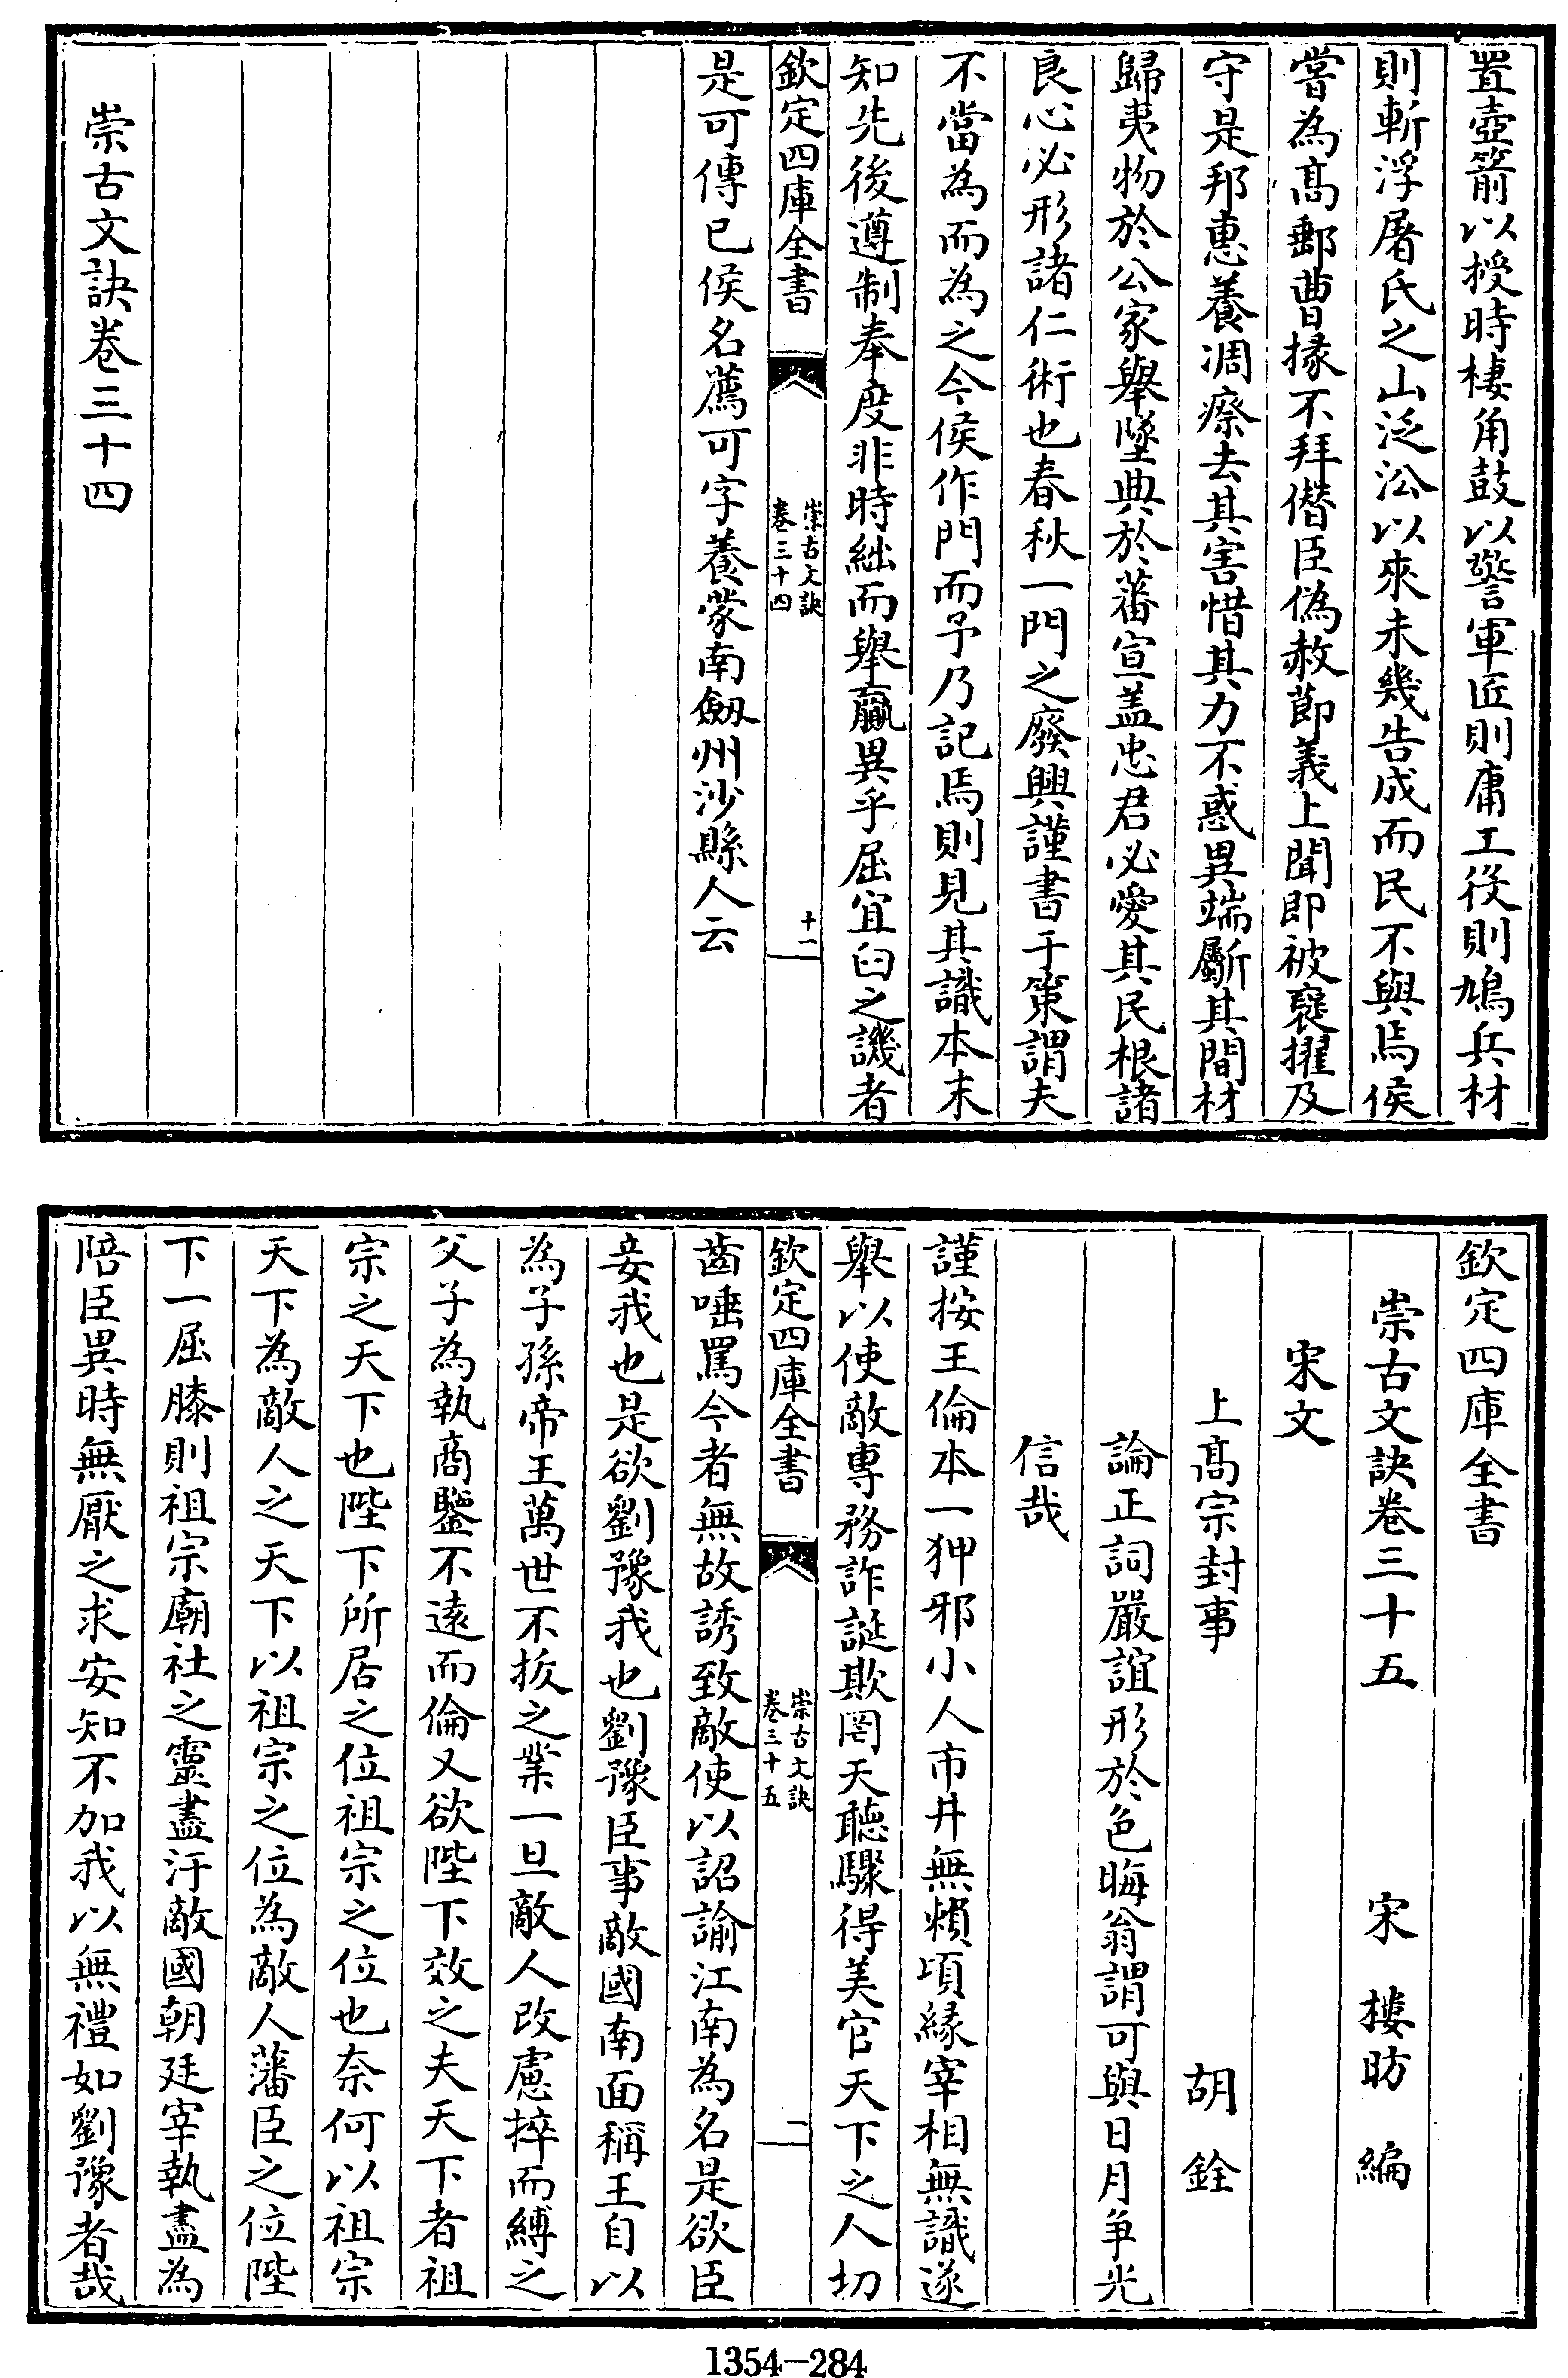 置壺箭以授時棲角鼓以警軍匠則庸工役則鳩兵材
則斬浮屠氏之山泛沿以來未幾告成而民不與焉侯
嘗為髙郵曹掾不拜僭臣偽赦節義上聞即被襃擢及
守是邦惠養凋瘵去其害惜其力不惑異端斸其間材
歸夷物於公家舉墜典於蕃宣盖忠君必愛其民根諸
良心必形諸仁術也春秋一門之廢興謹書于策謂夫
不當為而為之今侯作門而予乃記焉則見其識本末
知先後遵制奉度非時絀而舉贏異乎屈宜臼之譏者
欽定四庫全書
崇古文訣
卷三十四
十一
是可傳已侯名薦可字養蒙南劔州沙縣人云
崇古文訣卷三十四
欽定四庫全書
崇古文訣卷三十五 宋 樓昉 編
宋文
上髙宗封事 胡銓
論正詞嚴誼形於色晦翁謂可與日月争光
信哉
謹按王倫本一狎邪小人市井無頼頃縁宰相無識遂
舉以使敵專務詐誕欺罔天聽驟得美官天下之人切
欽定四庫全書
崇古文訣
卷三十五
二
齒唾罵今者無故誘致敵使以詔諭江南為名是欲臣
妾我也是欲劉豫我也劉豫臣事敵國南面稱王自以
為子孫帝王萬世不拔之業一旦敵人改慮捽而縛之
父子為執商鑒不逺而倫又欲陛下效之夫天下者祖
宗之天下也陛下所居之位祖宗之位也奈何以祖宗
天下為敵人之天下以祖宗之位為敵人藩臣之位陛
下一屈膝則祖宗廟社之靈盡汙敵國朝廷宰執盡為
陪臣異時無厭之求安知不加我以無禮如劉豫者哉
1354-284